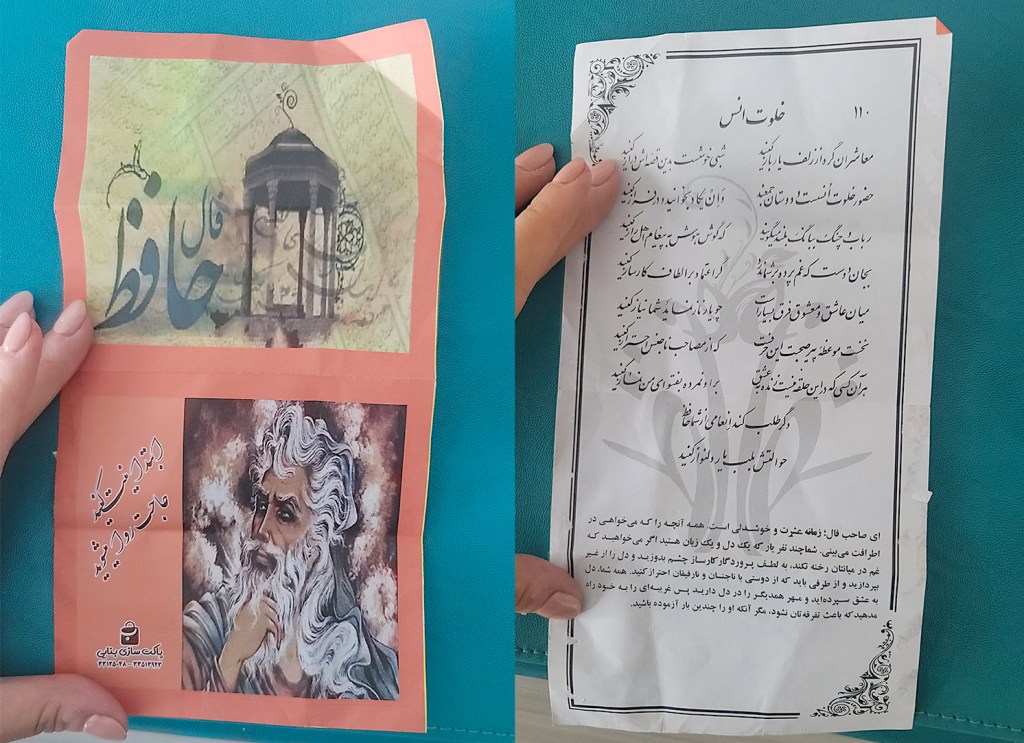 فال
حافظ
ابتدا نیت کنید
حاجت روا میشوید
پاکت سازی بنایی
۳۳۱۲۵۰۴۸ - ۳۳۵۱۳۹۲۳
خلوت انس ۱۱۰
معاشران گره از زلف یار باز کنید شبی خوشست بدین قصه‌اش دراز کنید
حضور خلوت انست و دوستان جمعند وان یکاد بخوانید و در فراز کنید
رباب و چنگ ببانگ بلند میگویند که گوش هوش به پیغام اهل راز کنید
بجان دوست که غم پرده بر شما ندرد گر اعتماد بر الطاف کارساز کنید
میان عاشق و معشوق فرق بسیارست چو یار ناز نماید شما نیاز کنید
نخست موعظهٔ پیر صحبت این حرفست که از مصاحب ناجنس احتراز کنید
هر آن کسی که در این حلقه نیست زنده به عشق بر او نمرده بفتوای من نماز کنید
وگر طلب کند انعامی از شما حافظ
حوالتش بلب یار دلنواز کنید
ای صاحب فال: زمانه عشرت و خوشدلی است. همه آنچه را که می‌خواهی در
اطرافت می‌بینی. شما چند نفر یار که یک دل و یک زبان هستید اگر می‌خواهید که
غم در میانتان رخنه نکند، به لطف پروردگار کارساز چشم بدوزید و دل را از غیر
بپردازید و از طرفی باید که از دوستی با ناجنسان و نارفیقان احتراز کنید. همه شما، دل
به عشق سپرده‌اید و مهر همدیگر را در دل دارید پس غریبه‌ای را به خود راه
مدهید که باعث تفرقه‌تان نشود، مگر آنکه او را چندین بار آزموده باشید.